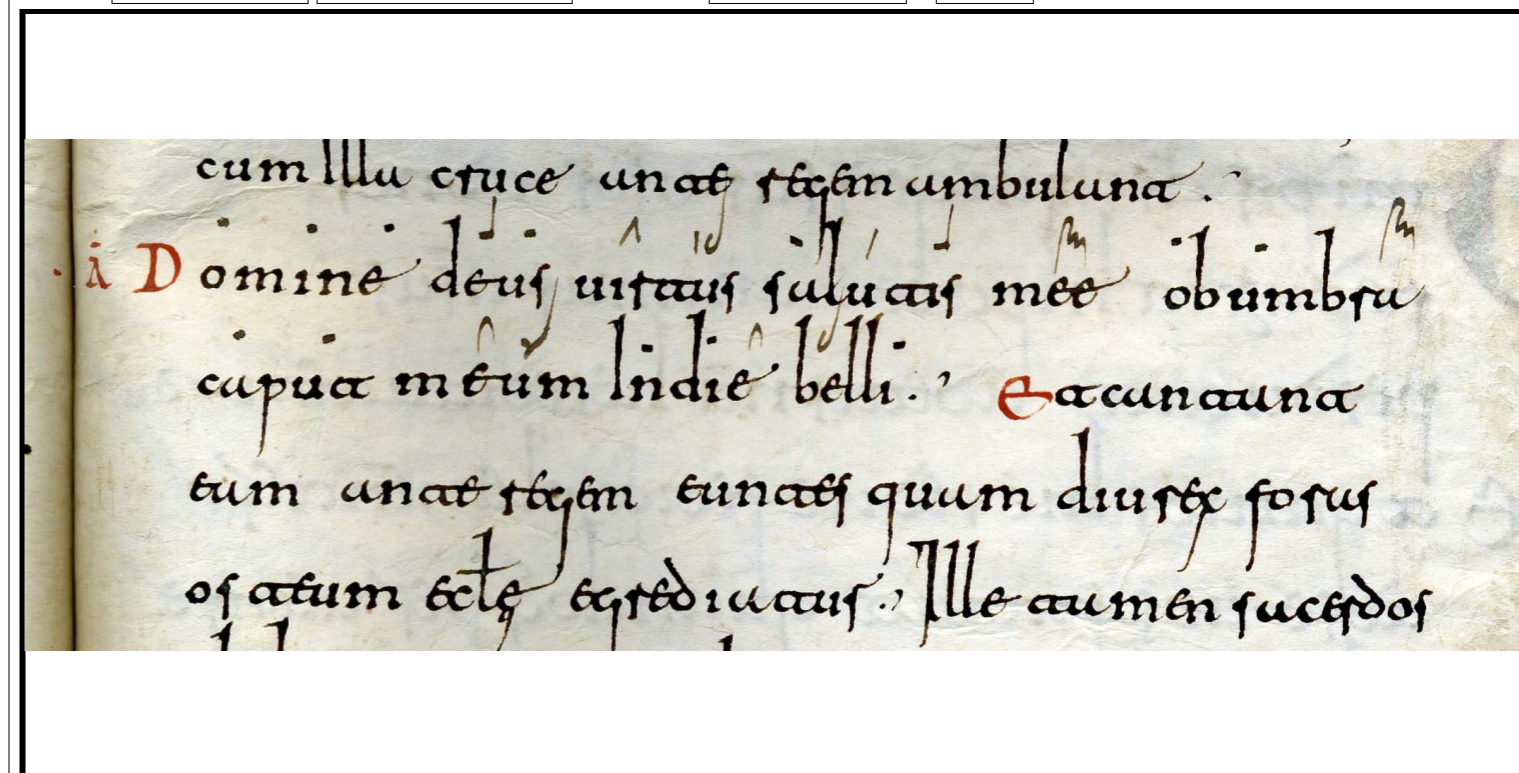 cum Illa cruce ante regem ambulant.
A Domine deus uirtus salutis mee obumbra
caput meum In die belli. Et cantant
eam ante regem euntes quam diu rex foras
osteum ecl̄ę egrediatur. Ille tamen sacerdos